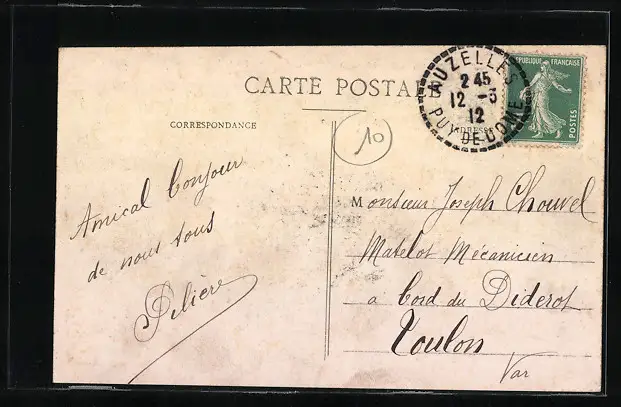 CARTE POSTALE
AUZELLES
2 45
12 -3
12
PUY DE DOME
REPUBLIQUE FRANÇAISE
POSTES
CORRESPONDANCE
ADRESSE
10
Amical bonjour
de nous tous
Pelière
Monsieur Joseph Chouvel
Matelot Mécanicien
a bord du Diderot
Toulon
Var